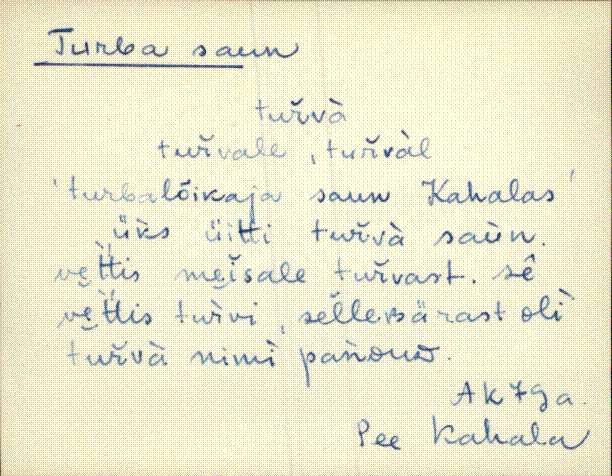 Turba saun
tuřvà
tuřvale, tuřvàl
'turbalõikaja saun Kahalas'
üks üitti tuřvà saùn.
vęttis meĭsale tuřvast. sê
vęttis tuřvi, sẽllepärast oli
tuřvà nimì pańouᴅ.
AK 79a.
Pee Kahala